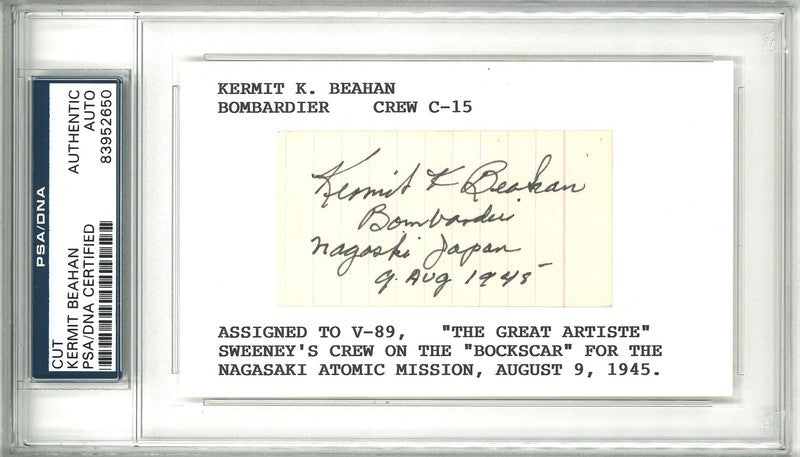 PSA/DNA
CUT
KERMIT BEAHAN
PSA/DNA CERTIFIED
AUTHENTIC
AUTO
83952650
KERMIT K. BEAHAN
BOMBARDIER CREW C-15
Kermit K Beahan
Bombardii
Nagaski Japan
9 Aug 1945
ASSIGNED TO V-89, "THE GREAT ARTISTE"
SWEENEY'S CREW ON THE "BOCKSCAR" FOR THE
NAGASAKI ATOMIC MISSION, AUGUST 9, 1945.